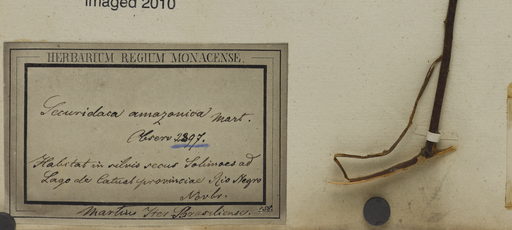 Imaged 2010
HERBARIUM REGIUM MONACENSE.
Securidaca amazonica Mart.
Observ. 2897.
Habitat in silvis secus Solimoes ad
Lago de Catua provinciae Rio Negro
Novbr.
Martius Iter Brasiliense.